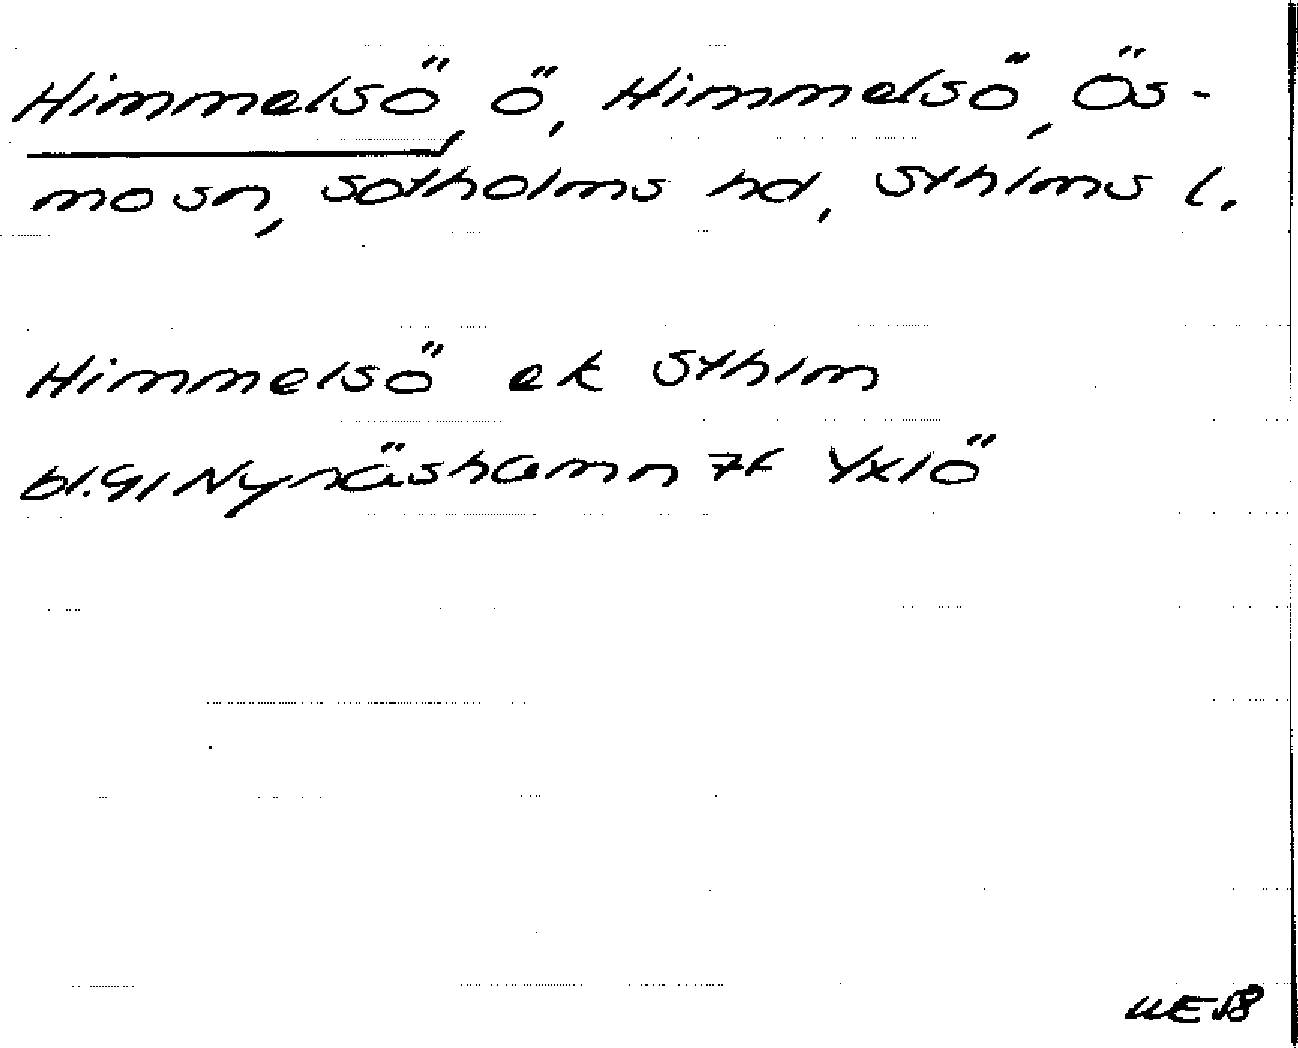 Himmelsö, ö, Himmelsö, Ös-
mo sn, Sotholms hd, Sthlms l.
Himmelsö ek Sthlm
bl. 91 Nynäshamn 7f Yxlö